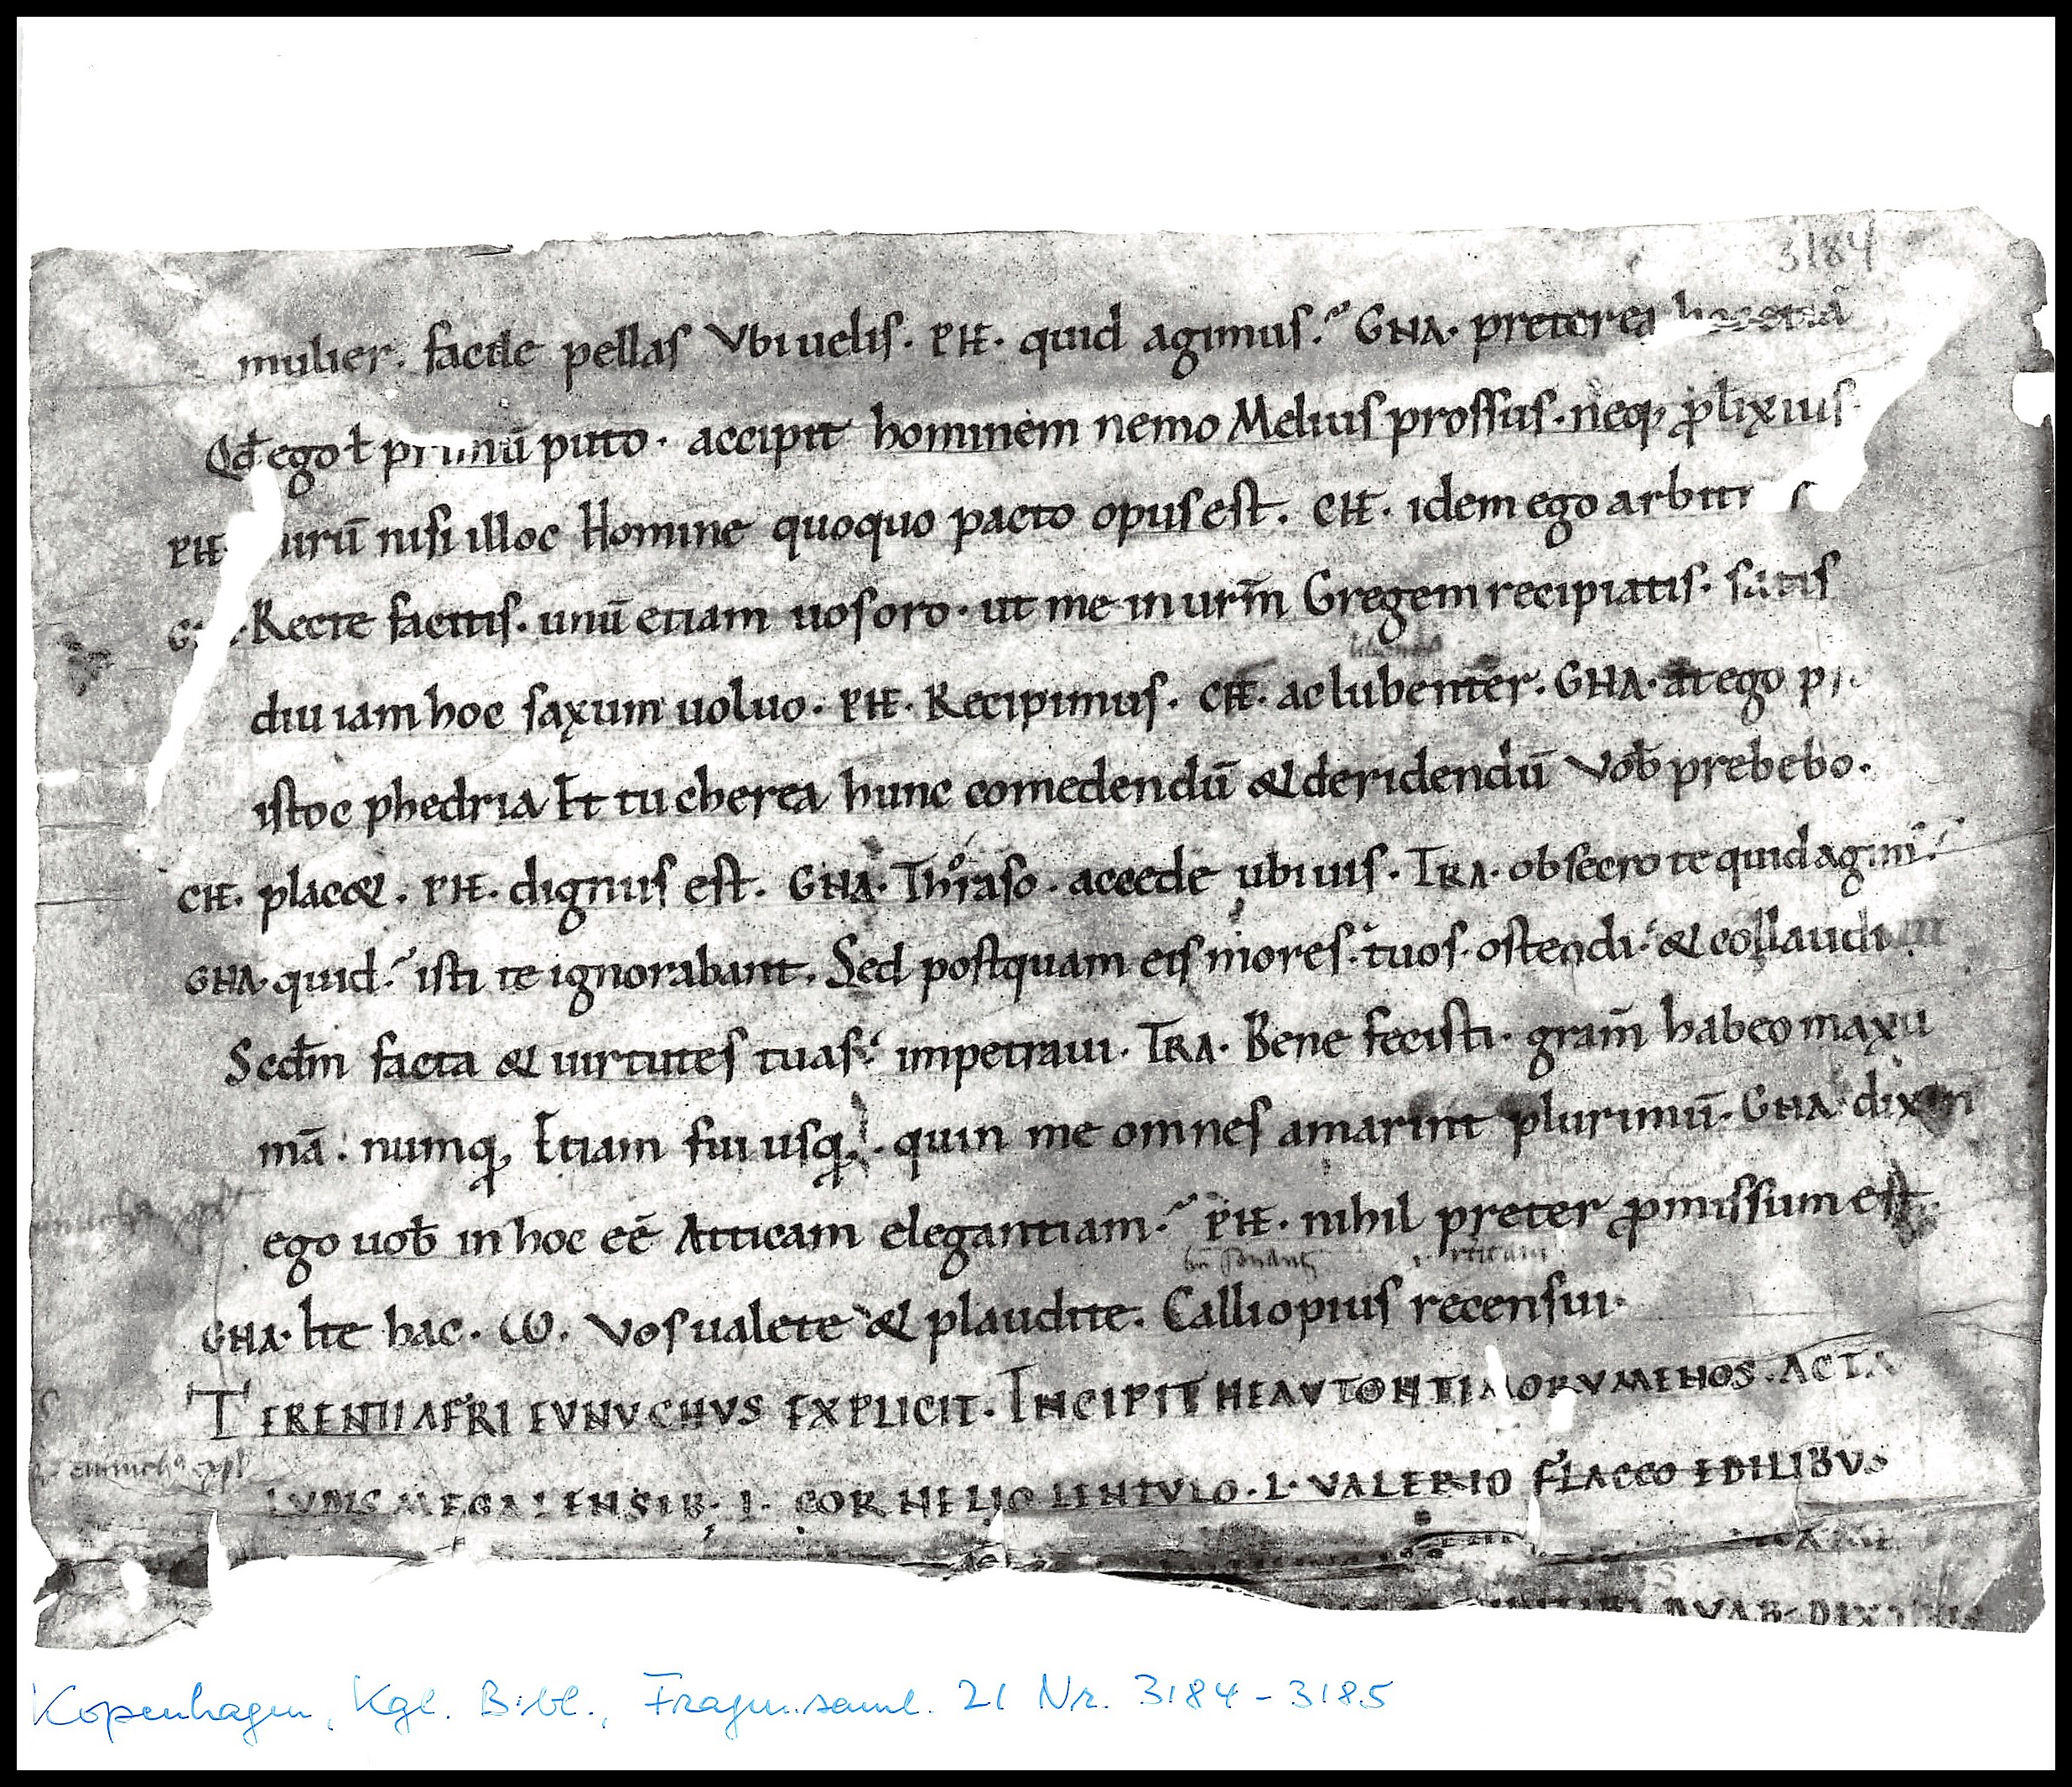 3184
mulier. facile pellas Vbi uelis. PH. quid agimus? GNA. preterea hoc etiā
Qđ ego ł primū puto. accipit hominem nemo Melius prossus. neq; ꝓlixius.
PH. urū nisi illoc Homine quoquo pacto opus est. CH. idem ego arbitr
Recte facitis. unū etiam uos oro. ut me in urm̄ Gregem recipiatis. satis
diu iam hoc saxum uoluo. PH. Recipimus. CH. ac lubenter. GNA. at ego pr
istoc phedria Et tu cherea hunc comedendū & deridendū Vob̄ prebebo.
CH. plac&. PH. dignus est. GNA. Thraso. accede ubi uis. TRA. obsecro te quid agim̄?
GNA. quid? isti te ignorabant. Sed postquam eis mores. tuos. ostendi. & collaudaui
Secdm̄ facta & uirtutes tuas. impetraui. TRA. Bene fecisti. gram̄ habeo maxu
mā. numq; Etiam fui usq;. quin me omnes amarint plurimū. GNA. dixin
ego uob̄ in hoc eē Atticam elegantiam? PH. nihil preter ꝓmissum est
GNA. Ite hac. ω. Vos ualete & plaudite. Calliopius recensui.
TERENTII AFRI EVNVCHVS EXPLICIT. INCIPIT HEAVTONTIMORVMENOS. ACTA
LVDIS MEGALENSIB; L. CORNELIO LENTVLO. L. VALERIO FLACCO EDILIBVS
Kopenhagen, Kgl. Bibl., Fragm.saml. 21 Nr. 3184-3185